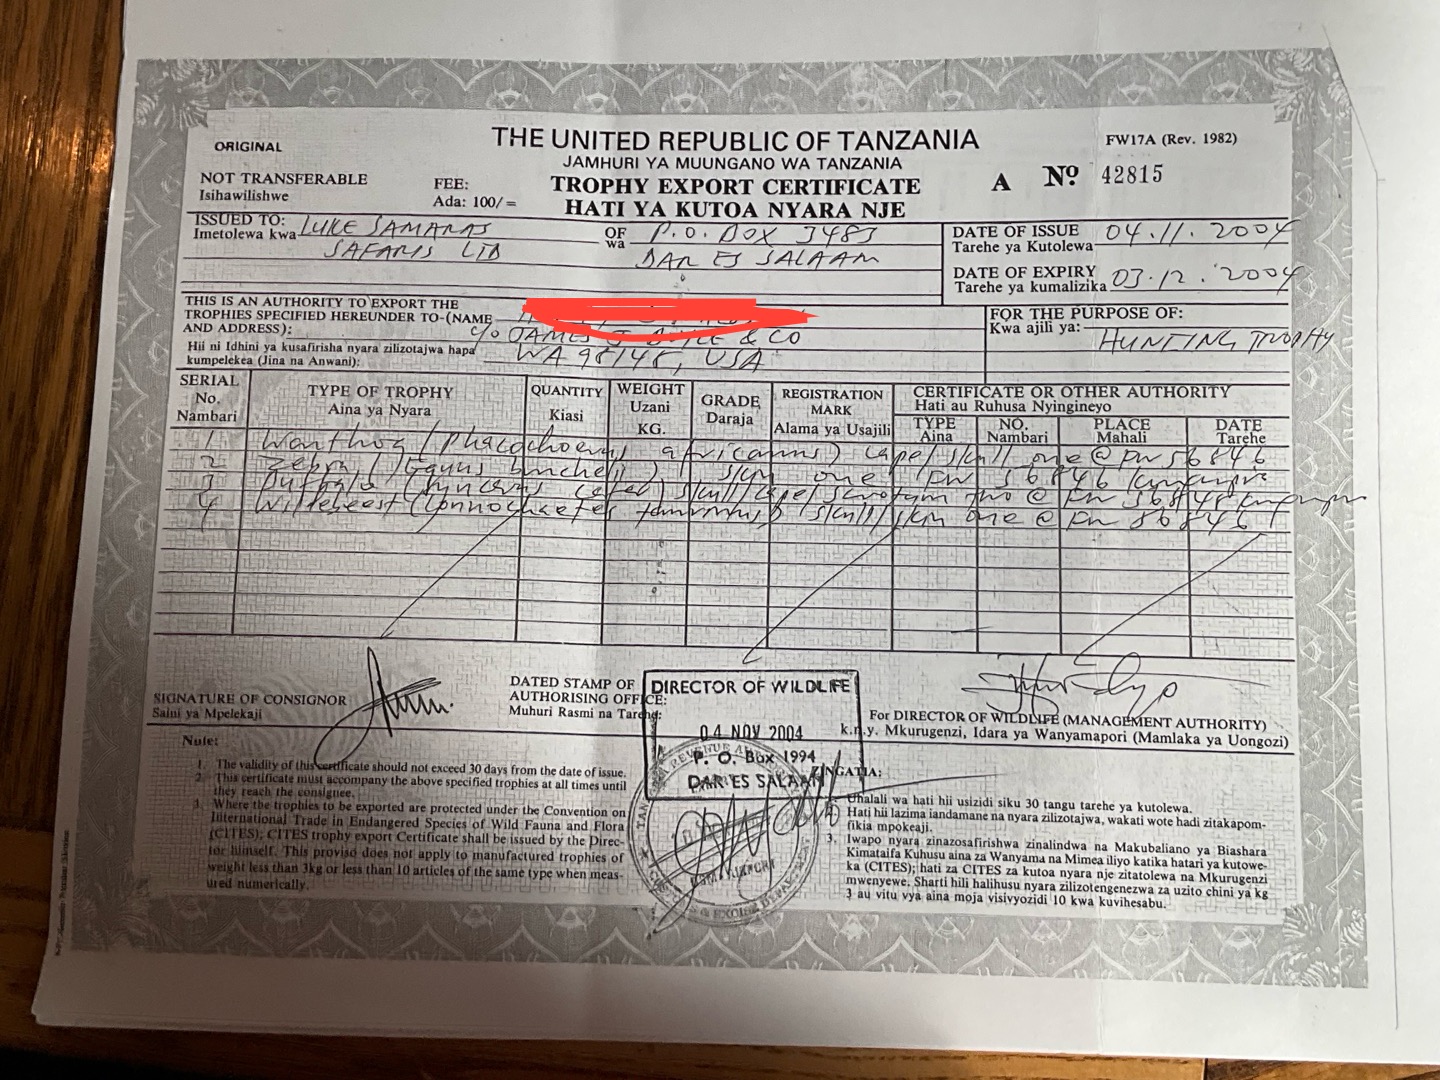 THE UNITED REPUBLIC OF TANZANIA
JAMHURI YA MUUNGANO WA TANZANIA
ORIGINAL
FW17A (Rev. 1982)
NOT TRANSFERABLE
Isihawilishwe
FEE:
Ada: 100/=
TROPHY EXPORT CERTIFICATE
HATI YA KUTOA NYARA NJE
A Nº 42815
ISSUED TO:
Imetolewa kwa
LUKE SAMARAS
SAFARIS LTD
OF
wa
P.O. BOX 3483
DAR ES SALAAM
DATE OF ISSUE
Tarehe ya Kutolewa
04.11.2004
DATE OF EXPIRY
Tarehe ya kumalizika
03.12.2004
THIS IS AN AUTHORITY TO EXPORT THE
TROPHIES SPECIFIED HEREUNDER TO-(NAME
AND ADDRESS):
Hii ni Idhini ya kusafirisha nyara zilizotajwa hapa
kumpelekea (Jina na Anwani):
c/o JAMES J BOYLE & CO
WA 98148, USA
FOR THE PURPOSE OF:
Kwa ajili ya:
HUNTING TROPHY
SERIAL
No.
Nambari
TYPE OF TROPHY
Aina ya Nyara
QUANTITY
Kiasi
WEIGHT
Uzani
KG.
GRADE
Daraja
REGISTRATION
MARK
Alama ya Usajili
CERTIFICATE OR OTHER AUTHORITY
Hati au Ruhusa Nyingineyo
TYPE
Aina
NO.
Nambari
PLACE
Mahali
DATE
Tarehe
1 Warthog (Phacochoerus africanus) cape/skull one @ FW 56846
2 Zebra (Equus burchelli) skin one FW 56846
3 Buffalo (Syncerus caffer) skull/cape/scrotum two @ FW 56846
4 Wildebeest (Connochaetes taurinus) skull/skin one @ FW 56846
SIGNATURE OF CONSIGNOR
Saini ya Mpelekaji
DATED STAMP OF
AUTHORISING OFFICE:
Muhuri Rasmi na Tarehe:
DIRECTOR OF WILDLIFE
04 NOV 2004
P. O. Box 1994
DAR ES SALAAM
For DIRECTOR OF WILDLIFE (MANAGEMENT AUTHORITY)
k.n.y. Mkurugenzi, Idara ya Wanyamapori (Mamlaka ya Uongozi)
Note:
1. The validity of this certificate should not exceed 30 days from the date of issue.
2. This certificate must accompany the above specified trophies at all times until
they reach the consignee.
3. Where the trophies to be exported are protected under the Convention on
International Trade in Endangered Species of Wild Fauna and Flora
(CITES); CITES trophy export Certificate shall be issued by the Direc-
tor himself. This proviso does not apply to manufactured trophies of
weight less than 3kg or less than 10 articles of the same type when meas-
ured numerically.
ZINGATIA:
Uhalali wa hati hii usizidi siku 30 tangu tarehe ya kutolewa.
Hati hii lazima iandamane na nyara zilizotajwa, wakati wote hadi zitakapom-
fikia mpokeaji.
3. Iwapo nyara zinazosafirishwa zinalindwa na Makubaliano ya Biashara
Kimataifa Kuhusu aina za Wanyama na Mimea iliyo katika hatari ya kutowe-
ka (CITES); hati za CITES za kutoa nyara nje zitatolewa na Mkurugenzi
mwenyewe. Sharti hili halihusu nyara zilizotengenezwa za uzito chini ya kg
3 au vitu vya aina moja visivyozidi 10 kwa kuvihesabu.